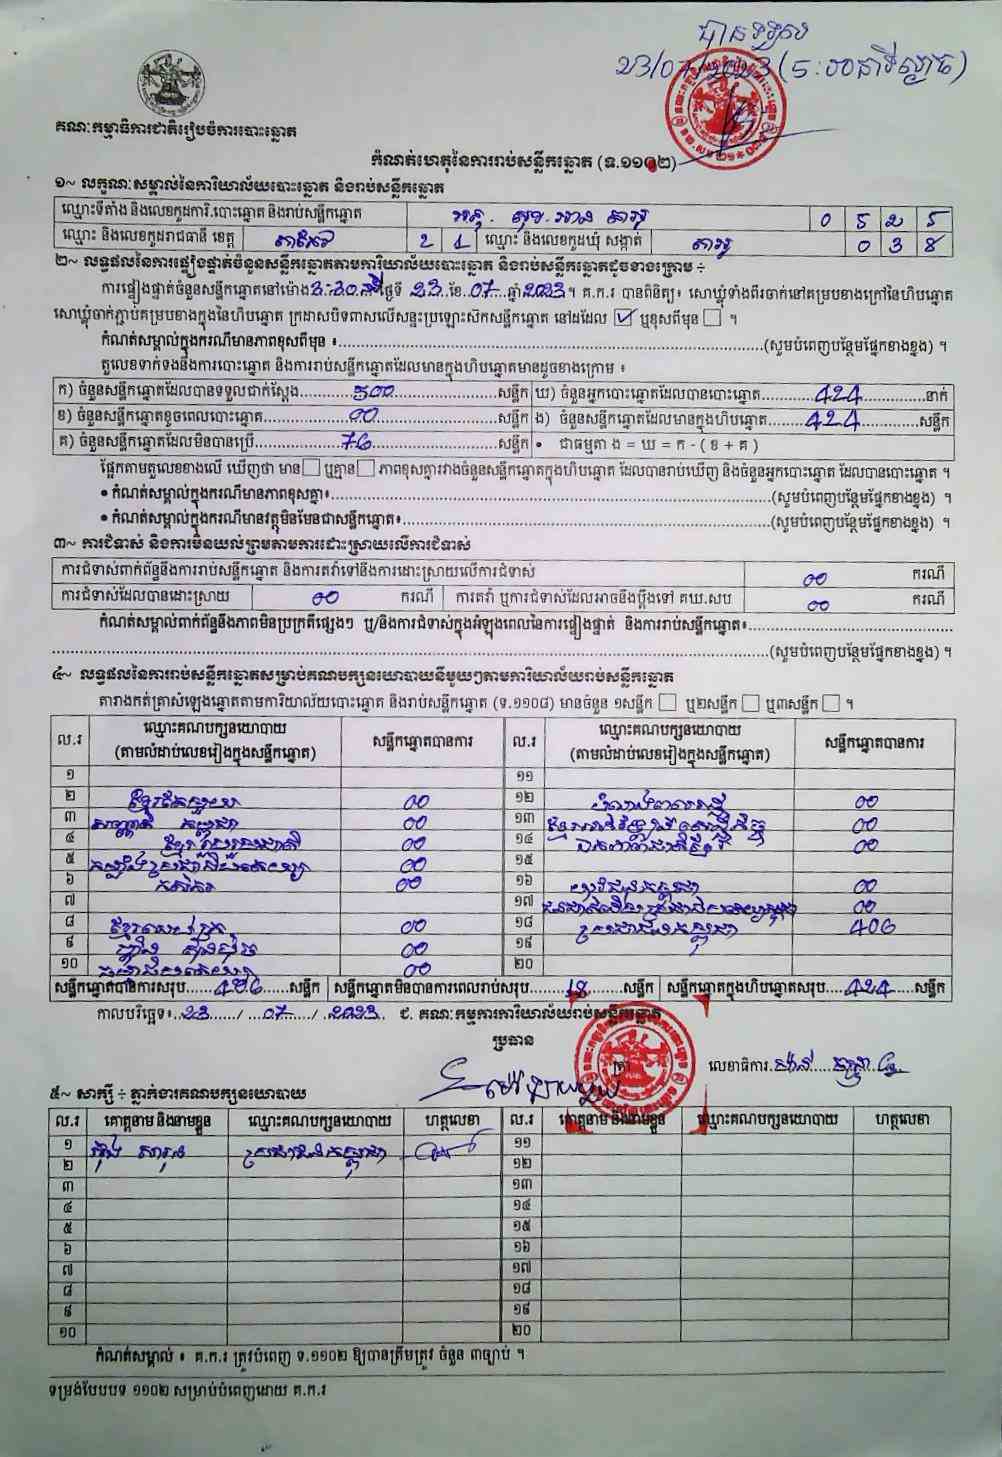 បានទទួល
23/07/2023 (5:00នាទីល្ងាច)
គណៈកម្មាធិការជាតិរៀបចំការបោះឆ្នោត
កំណត់ហេតុនៃការរាប់សន្លឹកឆ្នោត (ទ.១១០២)
១~ លក្ខណៈសម្គាល់នៃការិយាល័យបោះឆ្នោត និងរាប់សន្លឹកឆ្នោត
ឈ្មោះទីតាំង និងលេខកូដការិ.បោះឆ្នោត និងរាប់សន្លឹកឆ្នោត 0 5 2 5
ឈ្មោះ និងលេខកូដរាជធានី ខេត្ត តាកែវ 2 1 ឈ្មោះ និងលេខកូដឃុំ សង្កាត់ 0 3 8
២~ លទ្ធផលនៃការផ្ទៀងផ្ទាត់ចំនួនសន្លឹកឆ្នោតតាមការិយាល័យបោះឆ្នោត និងរាប់សន្លឹកឆ្នោតដូចខាងក្រោម ÷
ការផ្ទៀងផ្ទាត់ចំនួនសន្លឹកឆ្នោតនៅម៉ោង 3:30 ថ្ងៃទី 23 ខែ 07 ឆ្នាំ 2023 ។ គ.ក.រ បានពិនិត្យ៖ សោឃ្លុំទាំងពីរចាក់នៅគម្របខាងក្រៅនៃហិបឆ្នោត
សោឃ្លុំចាក់ភ្ជាប់គម្របខាងក្នុងនៃហិបឆ្នោត ក្រដាសបិទពាសលើសន្ទះប្រឡោះស៊កសន្លឹកឆ្នោត នៅដដែល ☑ ឬខុសពីមុន ☐ ។
កំណត់សម្គាល់ក្នុងករណីមានភាពខុសពីមុន ៖ (សូមបំពេញបន្ថែមផ្នែកខាងខ្នង) ។
តួលេខទាក់ទងនឹងការបោះឆ្នោត និងការរាប់សន្លឹកឆ្នោតដែលមានក្នុងហិបឆ្នោតមានដូចខាងក្រោម ៖
ក) ចំនួនសន្លឹកឆ្នោតដែលបានទទួលជាក់ស្តែង 500 សន្លឹក ឃ) ចំនួនអ្នកបោះឆ្នោតដែលបានបោះឆ្នោត 424 នាក់
ខ) ចំនួនសន្លឹកឆ្នោតខូចពេលបោះឆ្នោត 00 សន្លឹក ង) ចំនួនសន្លឹកឆ្នោតដែលមានក្នុងហិបឆ្នោត 424 សន្លឹក
គ) ចំនួនសន្លឹកឆ្នោតដែលមិនបានប្រើ 76 សន្លឹក • ជាធម្មតា ង = ឃ = ក - ( ខ + គ )
ផ្អែកតាមតួលេខខាងលើ ឃើញថា មាន ☐ ឬគ្មាន ☐ ភាពខុសគ្នារវាងចំនួនសន្លឹកឆ្នោតក្នុងហិបឆ្នោត ដែលបានរាប់ឃើញ និងចំនួនអ្នកបោះឆ្នោត ដែលបានបោះឆ្នោត ។
• កំណត់សម្គាល់ក្នុងករណីមានភាពខុសគ្នា៖ (សូមបំពេញបន្ថែមផ្នែកខាងខ្នង) ។
• កំណត់សម្គាល់ក្នុងករណីមានវត្ថុមិនមែនជាសន្លឹកឆ្នោត៖ (សូមបំពេញបន្ថែមផ្នែកខាងខ្នង) ។
៣~ ការជំទាស់ និងការមិនយល់ព្រមតាមការដោះស្រាយលើការជំទាស់
ការជំទាស់ពាក់ព័ន្ធនឹងការរាប់សន្លឹកឆ្នោត និងការតវ៉ាទៅនឹងការដោះស្រាយលើការជំទាស់ 00 ករណី
ការជំទាស់ដែលបានដោះស្រាយ 00 ករណី ការតវ៉ា ឬការជំទាស់ដែលអាចនឹងប្តឹងទៅ គឃ.សប 00 ករណី
កំណត់សម្គាល់ពាក់ព័ន្ធនឹងភាពមិនប្រក្រតីផ្សេងៗ ឬ/និងការជំទាស់ក្នុងអំឡុងពេលនៃការផ្ទៀងផ្ទាត់ និងការរាប់សន្លឹកឆ្នោត៖
(សូមបំពេញបន្ថែមផ្នែកខាងខ្នង) ។
៤~ លទ្ធផលនៃការរាប់សន្លឹកឆ្នោតសម្រាប់គណបក្សនយោបាយនីមួយៗតាមការិយាល័យរាប់សន្លឹកឆ្នោត
តារាងកត់ត្រាសំឡេងឆ្នោតតាមការិយាល័យបោះឆ្នោត និងរាប់សន្លឹកឆ្នោត (ទ.១១០៨) មានចំនួន ១សន្លឹក ☐ ឬ២សន្លឹក ☐ ឬ៣សន្លឹក ☐ ។
ល.រ ឈ្មោះគណបក្សនយោបាយ (តាមលំដាប់លេខរៀងក្នុងសន្លឹកឆ្នោត) សន្លឹកឆ្នោតបានការ ល.រ ឈ្មោះគណបក្សនយោបាយ (តាមលំដាប់លេខរៀងក្នុងសន្លឹកឆ្នោត) សន្លឹកឆ្នោតបានការ
១ ១១
២ 00 ១២ 00
៣ 00 ១៣ 00
៤ 00 ១៤ 00
៥ 00 ១៥
៦ កសិករ 00 ១៦ យុវជនកម្ពុជា 00
៧ ១៧ 00
៨ 00 ១៨ ប្រជាជនកម្ពុជា 406
៩ 00 ១៩
១០ 00 ២០
សន្លឹកឆ្នោតបានការសរុប 406 សន្លឹក សន្លឹកឆ្នោតមិនបានការពេលរាប់សរុប 18 សន្លឹក សន្លឹកឆ្នោតក្នុងហិបឆ្នោតសរុប 424 សន្លឹក
កាលបរិច្ឆេទ៖ 23 / 07 / 2023 ជ. គណៈកម្មការការិយាល័យរាប់សន្លឹកឆ្នោត
ប្រធាន
លេខាធិការ
៥~ សាក្សី ÷ ភ្នាក់ងារគណបក្សនយោបាយ
ល.រ គោត្តនាម និងនាមខ្លួន ឈ្មោះគណបក្សនយោបាយ ហត្ថលេខា ល.រ គោត្តនាម និងនាមខ្លួន ឈ្មោះគណបក្សនយោបាយ ហត្ថលេខា
១ ប្រជាជនកម្ពុជា ១១
២ ១២
៣ ១៣
៤ ១៤
៥ ១៥
៦ ១៦
៧ ១៧
៨ ១៨
៩ ១៩
១០ ២០
កំណត់សម្គាល់ ៖ គ.ក.រ ត្រូវបំពេញ ទ.១១០២ ឱ្យបានត្រឹមត្រូវ ចំនួន ៣ច្បាប់ ។
ទម្រង់បែបបទ ១១០២ សម្រាប់បំពេញដោយ គ.ក.រ